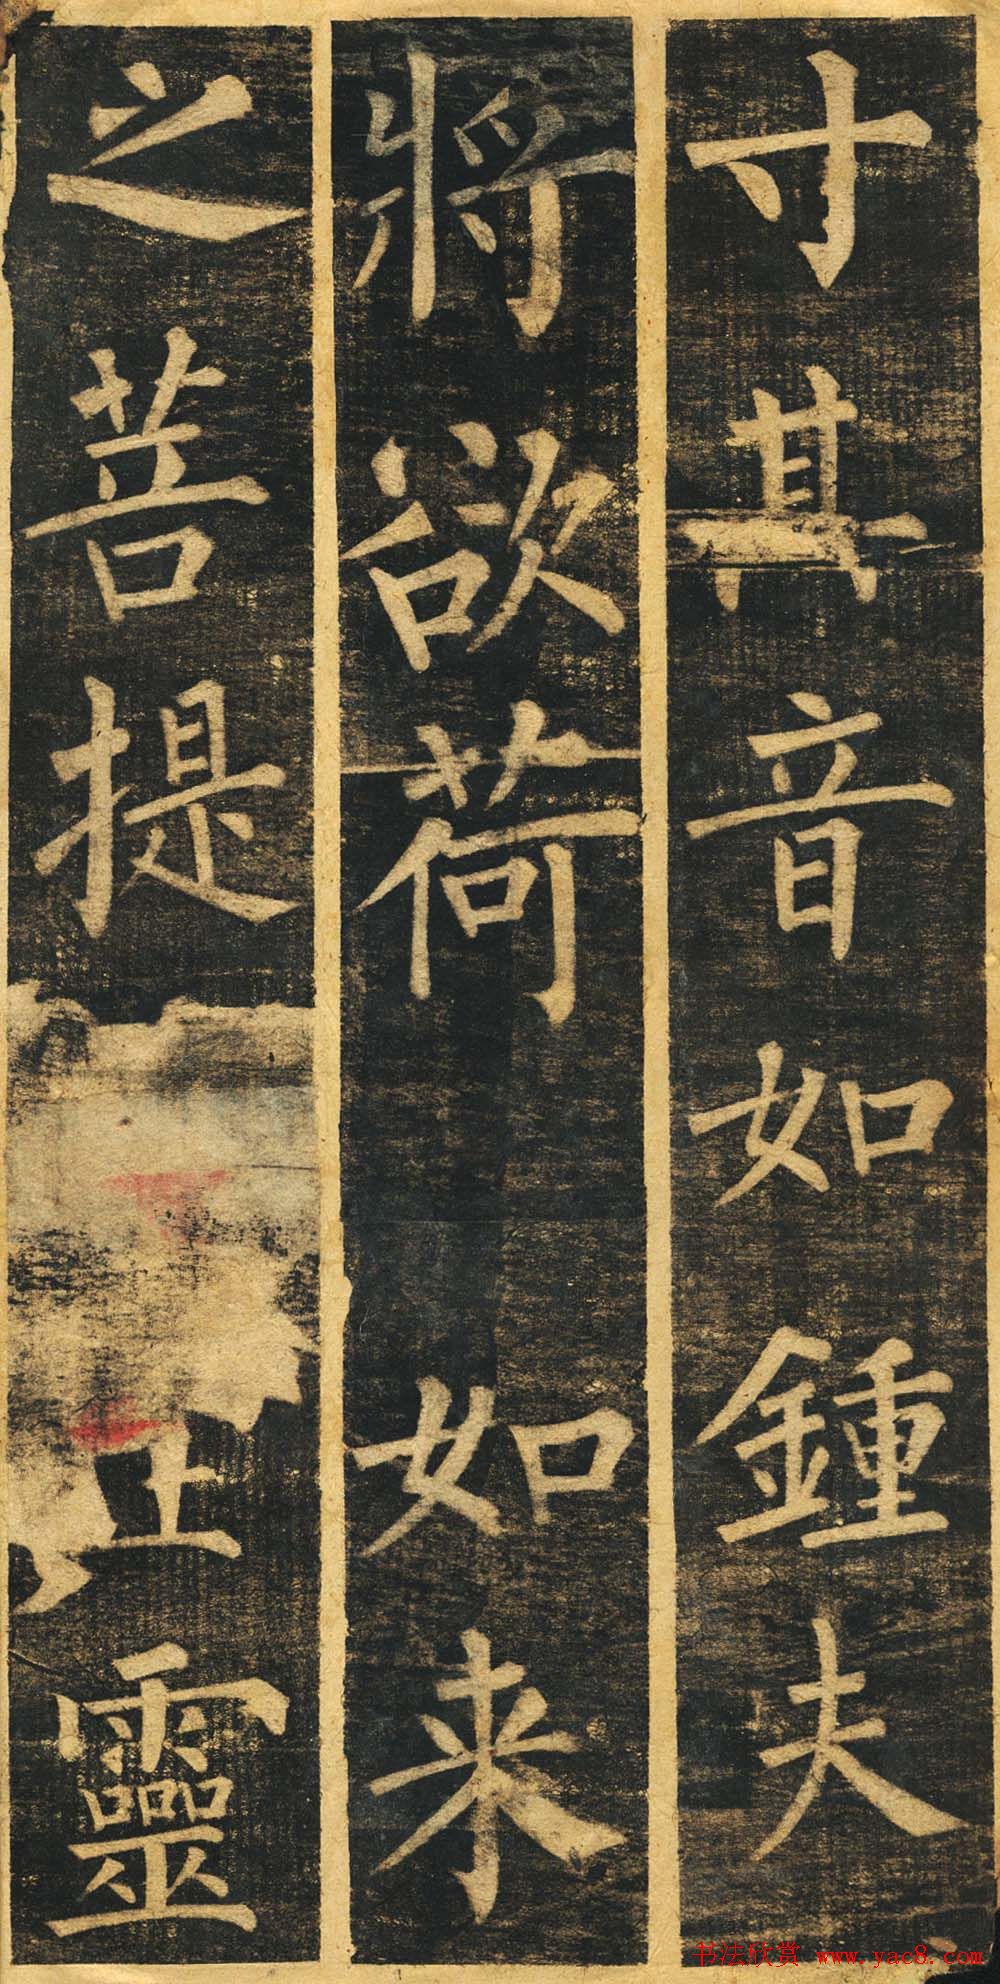 寸其音如鍾夫
將欲荷如来
之菩提靈
书法欣赏 www.yac8.com